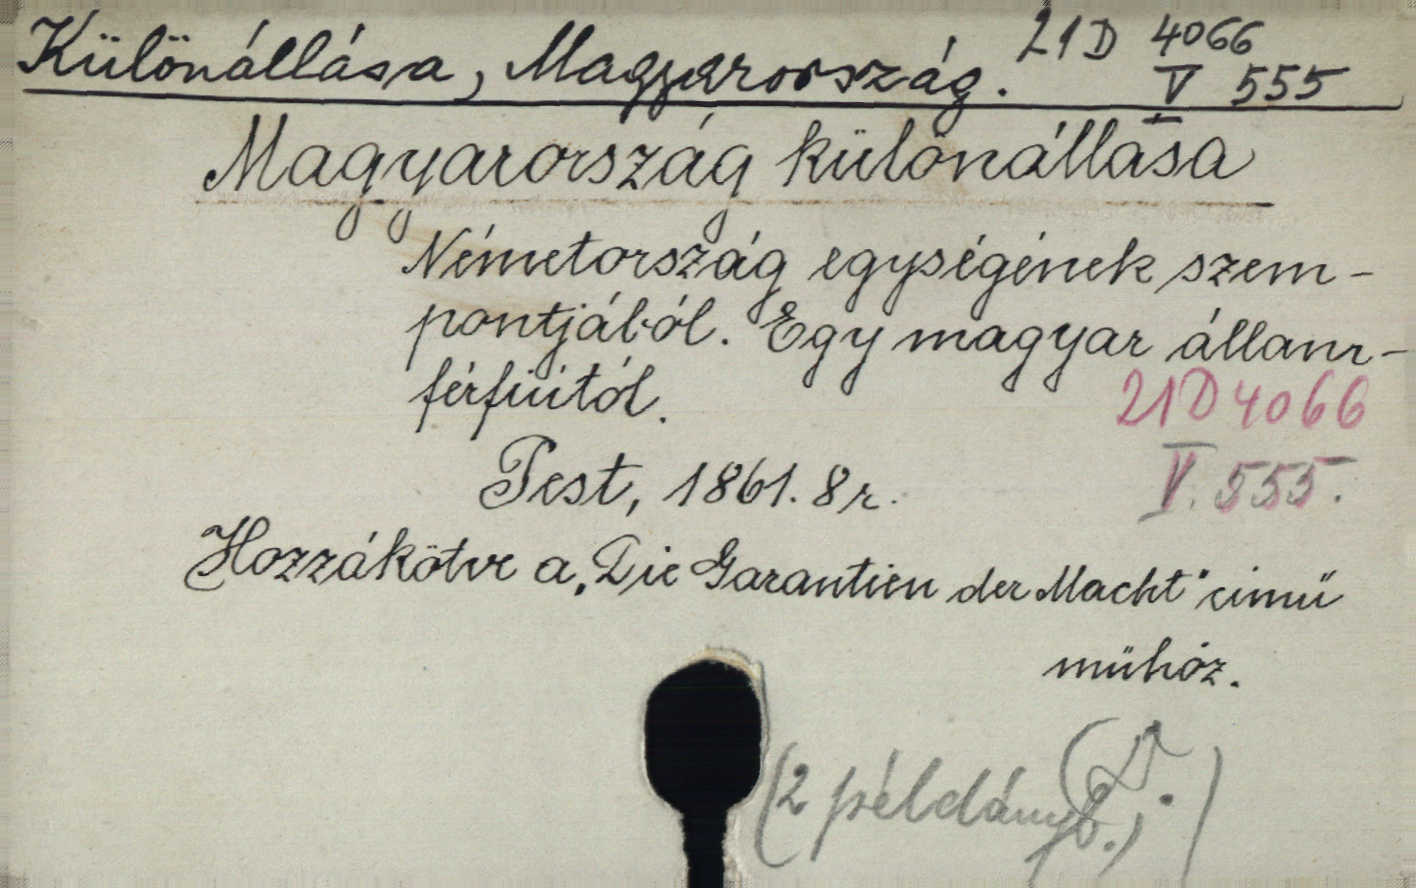 Különállása, Magyarország. 21 D 4066
V 555
Magyarország különállása
Németország egységének szem-
pontjából. Egy magyar állam-
férfiútól.
21 D 4066
Pest, 1861. 8 r.
V. 555.
Hozzákötve a „Die Garantien der Macht" cimű
műhöz.
(2 példányb.)